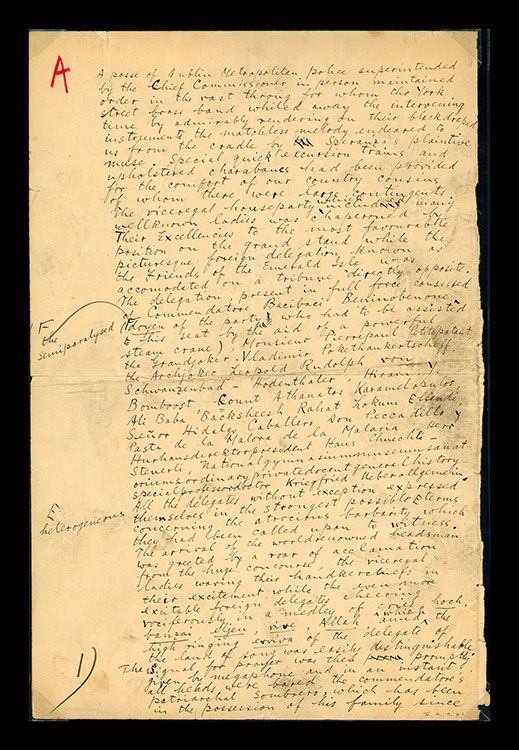 A
A posse of Dublin Metropolitan police superintended
by the Chief Commissioner in person maintained
order in the vast throng for whom the York
Street brass band whiled away the intervening
time by admirably rendering on their blackdraped
instruments the matchless melody endeared to
us from the cradle by Speranza's plaintive
muse. Special quick excursion trains and
upholstered charabancs had been provided
for the comfort of our country cousins
of whom there were large contingents
The viceregal houseparty which included many
wellknown ladies was chaperoned by
Their Excellencies to the most favourable
position on the grand stand while the
picturesque foreign delegation known as
the Friends of the Emerald Isle was
accomodated on a tribune directly opposite.
The delegation present in full force consisted
of Commendatore Bacibaci Beninobenone
F the semiparalysed
(doyen of the party who had to be assisted
to his seat by the aid of a powerful
steam crane), Monsieur Pierrepaul Petitépatant
the Grandjoker Vladimir Pokethankertscheff
the Archjoker Leopold Rudolph von
Schwanzenbad - Hodenthaler, Hiram Y.
Bomboost - Count Athanatos Karamelopulos,
Ali Baba Backsheesh Rahat Lokum Effendi,
Señor Hidalgo Caballero Don Peccadillo y
Pasta de la Malora de la Malaria, Herr
Hurhausdirektorpresident Hans Chuechli -
Steuerli, Nationalgymnasiummuseumsanat
oriumsordinaryprivatdocentgeneralhistory
specialprofessordoktor Kriegfried Ueberallgemein.
All the delegates without exception expressed
themselves in the strongest possible F terms
F heterogeneous
concerning the atrocious barbarity which
they had been called upon to witness.
The arrival of the worldrenowned headsman
was greeted by a roar of acclamation
from the huge concourse, the viceregal
ladies waving their handkerchiefs in
their excitement while the even more
excitable foreign delegates cheering
vociferously in a medley of cries, hoch,
banzai, eljen, vive, Allah, amid which the
high ringing evviva of the delegate of
the land of song was easily distinguishable
1)
The signal for prayer was then promptly
given by megaphone and in an instant
all heads were bared, the commendatore's
patriarchal sombrero, which has been
in the possession of his family since